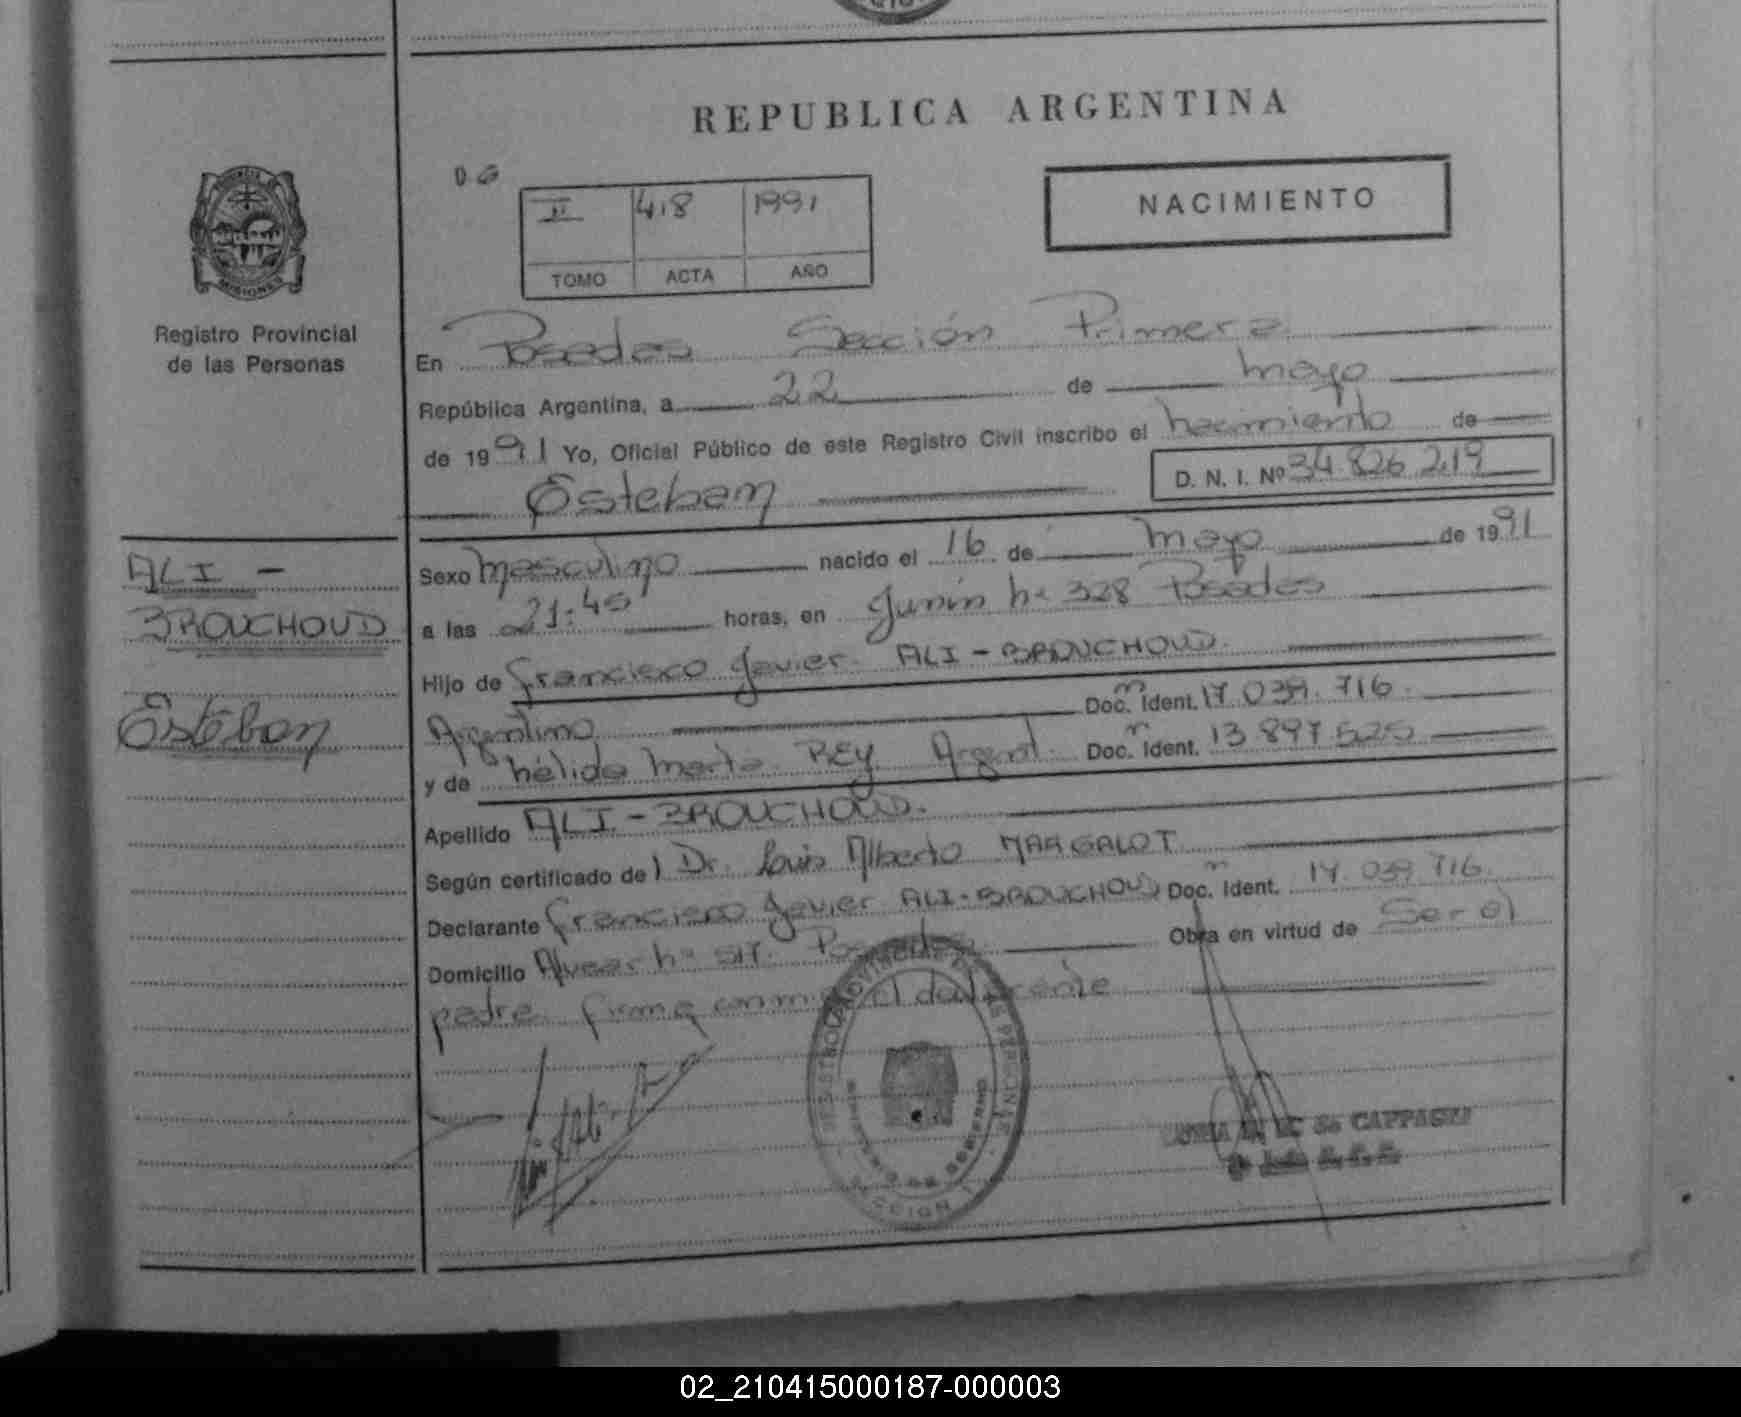 REPUBLICA ARGENTINA
NACIMIENTO
II 418 1991
TOMO ACTA AÑO
MISIONES
Registro Provincial
de las Personas
En Posadas Sección Primera
República Argentina, a 22 de mayo
de 1991 Yo, Oficial Público de este Registro Civil inscribo el nacimiento de
D. N. I. Nº 34.826.219
Esteban
ALI -
BROUCHOUD
Esteban
Sexo masculino nacido el 16 de mayo de 1991
a las 21:45 horas, en Junín nº 328 Posadas
Hijo de Francisco Javier ALI - BROUCHOUD.
Argentino Doc. Ident. 17.039.716.
y de Nélida Marta REY Argent. Doc. Ident. 13.897.525
Apellido ALI - BROUCHOUD.
Según certificado del Dr. Luis Alberto MARGALOT
Declarante Francisco Javier ALI - BROUCHOUD Doc. Ident. 17.039.716.
Domicilio Alvear nº Posadas Obra en virtud de Ser el
padre. firma conmigo el declarante
REGISTRO PROVINCIAL DE LAS PERSONAS
MINISTERIO DE GOBIERNO
02_210415000187-000003